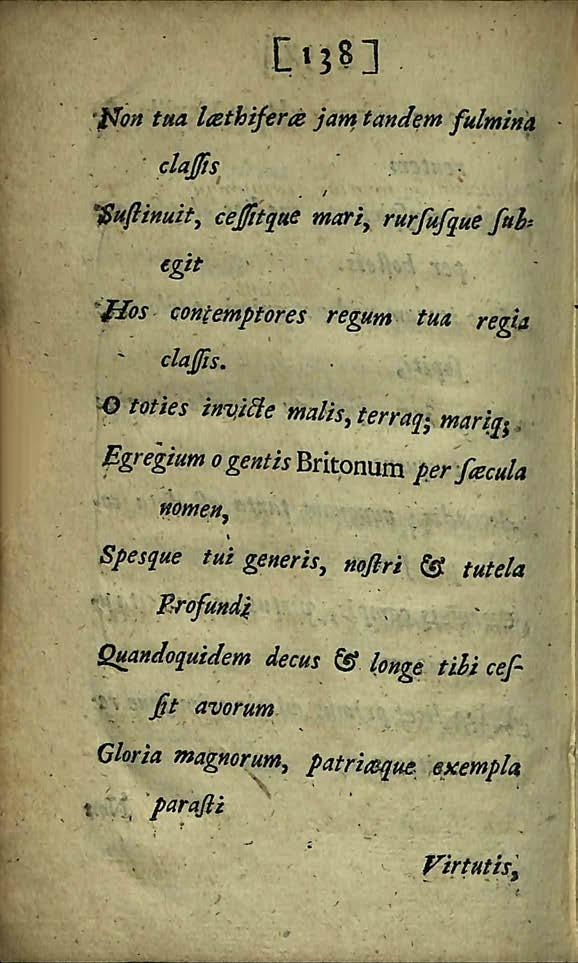 [138]
Non tua læthiferæ jam tandem fulmina
claſſis
Suſtinuit, ceſſitque mari, rurſuſque ſub-
egit
Hos contemptores regum tua regia
claſſis.
O toties invicte malis, terraq; mariq;
Egregium o gentis Britonum per ſæcula
nomen,
Spesque tui generis, noſtri & tutela
Profundi
Quandoquidem decus & longe tibi ceſ-
ſit avorum
Gloria magnorum, patriæque exempla
paraſti
Virtutis,